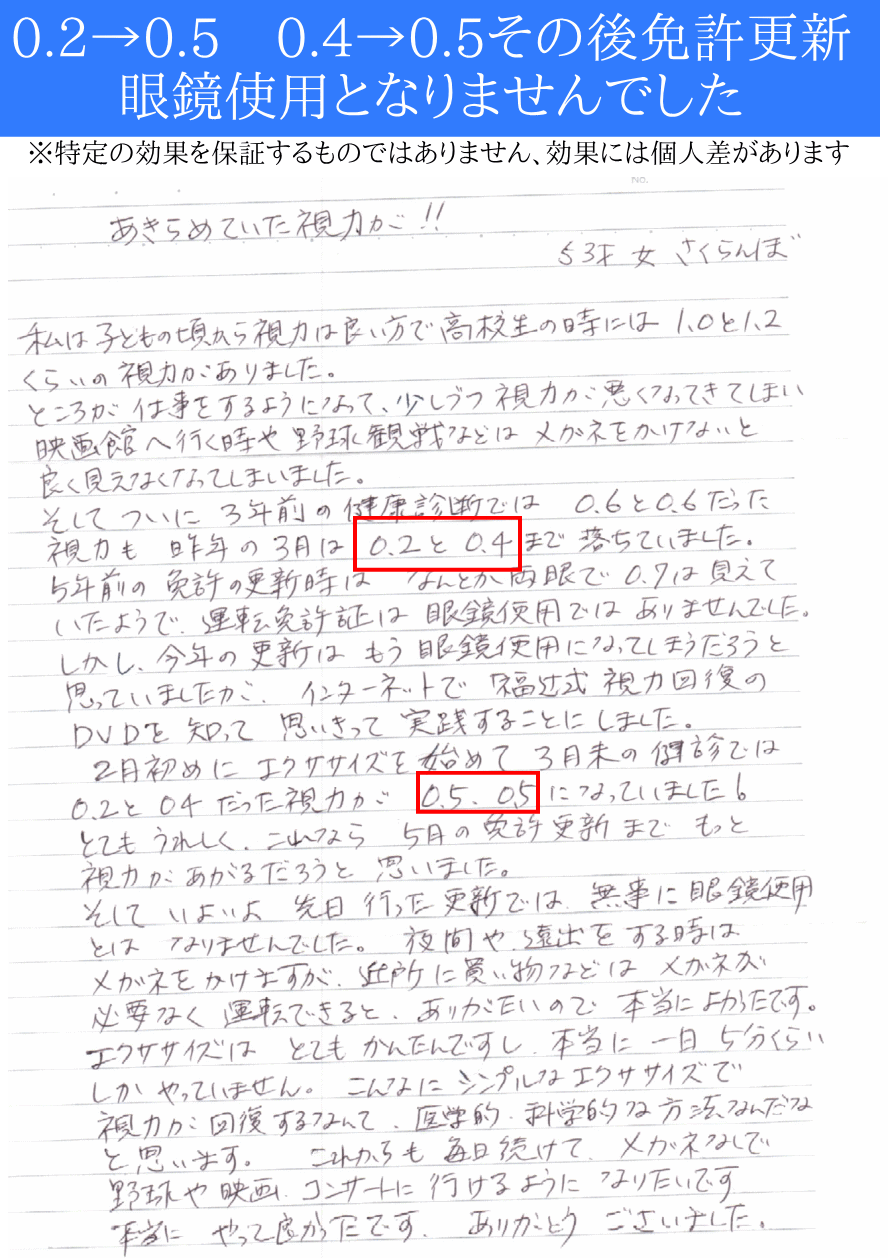 0.2→0.5　0.4→0.5その後免許更新
眼鏡使用となりませんでした
※特定の効果を保証するものではありません、効果には個人差があります
NO.
あきらめていた視力が!!
53才 女 さくらんぼ
私は子どもの頃から視力は良い方で高校生の時には 1.0と1.2
くらいの視力がありました。
ところが仕事をするようになって、少しづつ視力が悪くなってきてしまい
映画館へ行く時や野球観戦などはメガネをかけないと
良く見えなくなってしまいました。
そしてついに3年前の健康診断では 0.6と0.6だった
視力も 昨年の3月は 0.2と0.4まで落ちていました。
5年前の免許の更新時は なんとか両眼で0.7は見えて
いたようで、運転免許証は眼鏡使用ではありませんでした。
しかし、今年の更新はもう眼鏡使用になってしまうだろうと
思っていましたが、インターネットで福辻式視力回復の
DVDを知って思いきって実践することにしました。
2月初めにエクササイズを始めて3月末の健診では
0.2と04だった視力が 0.5、05になっていました。
とてもうれしく、これなら 5月の免許更新までもっと
視力があがるだろうと思いました。
そしていよいよ先日行った更新では、無事に眼鏡使用
とはなりませんでした。夜間や、遠出をする時は
メガネをかけますが、近所に買い物などはメガネが
必要なく運転できると、ありがたいので本当によかったです。
エクササイズはとてもかんたんですし、本当に一日5分くらい
しかやっていません。こんなにシンプルなエクササイズで
視力が回復するなんて、医学的、科学的な方法なんだな
と思います。これからも毎日続けて、メガネなしで
野球や映画、コンサートに行けるようになりたいです
本当にやって良かったです。ありがとうございました。